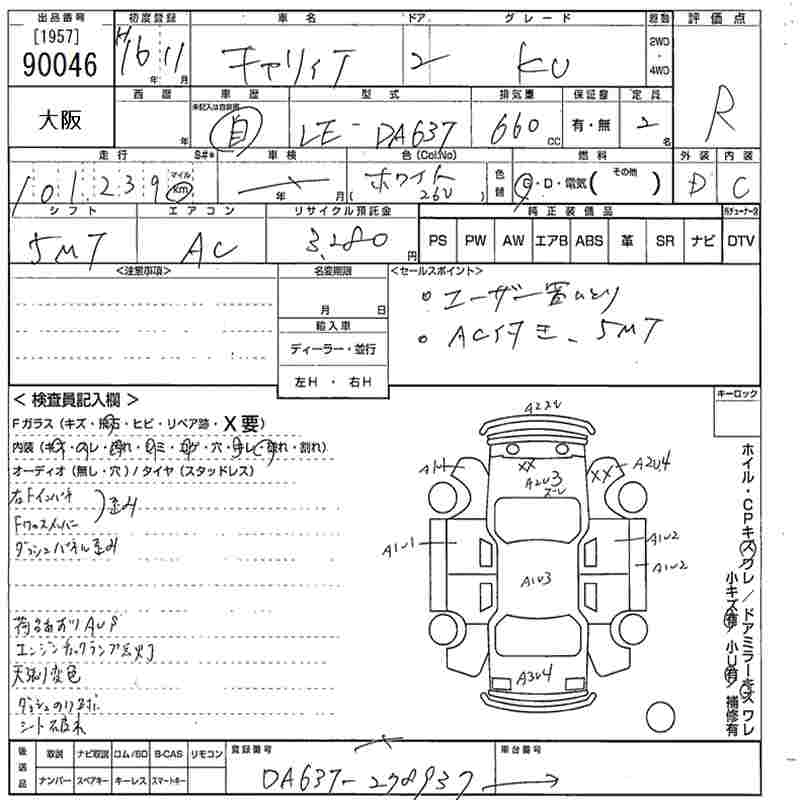 出品番号 初度登録 車名 ドア グレード 駆動 評価点
[1957] 90046 H16年11月 キャリィT 2 KU 2WD・4WD R
大阪 西暦 年 車歴 型式 排気量 保証書 定員
未記入は自家用 自 LE-DA63T 660CC 有・無 2名
走行 S#* 車検 色(Col.No) 色替 燃料 外装 内装
101239 マイル km 年 月 ホワイト (26U) G・D・電気( その他 ) D C
シフト エアコン リサイクル預託金 純正装備品 地デジチューナー等
5MT AC 3,280円 PS PW AW エアB ABS 革 SR ナビ DTV
<注意事項> 名変期限 <セールスポイント>
月 日
輸入車
ディーラー・並行
左H ・ 右H
。ユーザー買いとり
。AC付き、5MT
キーロック
< 検査員記入欄 >
Fガラス (キズ・飛石・ヒビ・リペア跡・X要)
内装 (キズ・スレ・汚れ・シミ・コゲ・穴・ヌレ・破れ・割れ)
オーディオ (無し・穴) / タイヤ (スタッドレス)
右Fインパネ
Fクロスメンバー
歪み
ダッシュパネル歪み
荷台あおりAUP
エンジンチェックランプ点灯
天張り変色
ダッシュのり跡
シート破れ
A2ズレ
XX
A2U3
ズレ
A1
XX
A2U4
A1U1
A1U2
A1U2
A1U3
A3U4
ホイル・CPキズワレ / ドアミラーキズワレ
小キズ有 / 小U有 / 補修有
後送品 取説 ナビ取説 ロム/SD B-CAS リモコン 登録番号 車台番号
ナンバー スペアキー キーレス スマートキー DA63T-278937